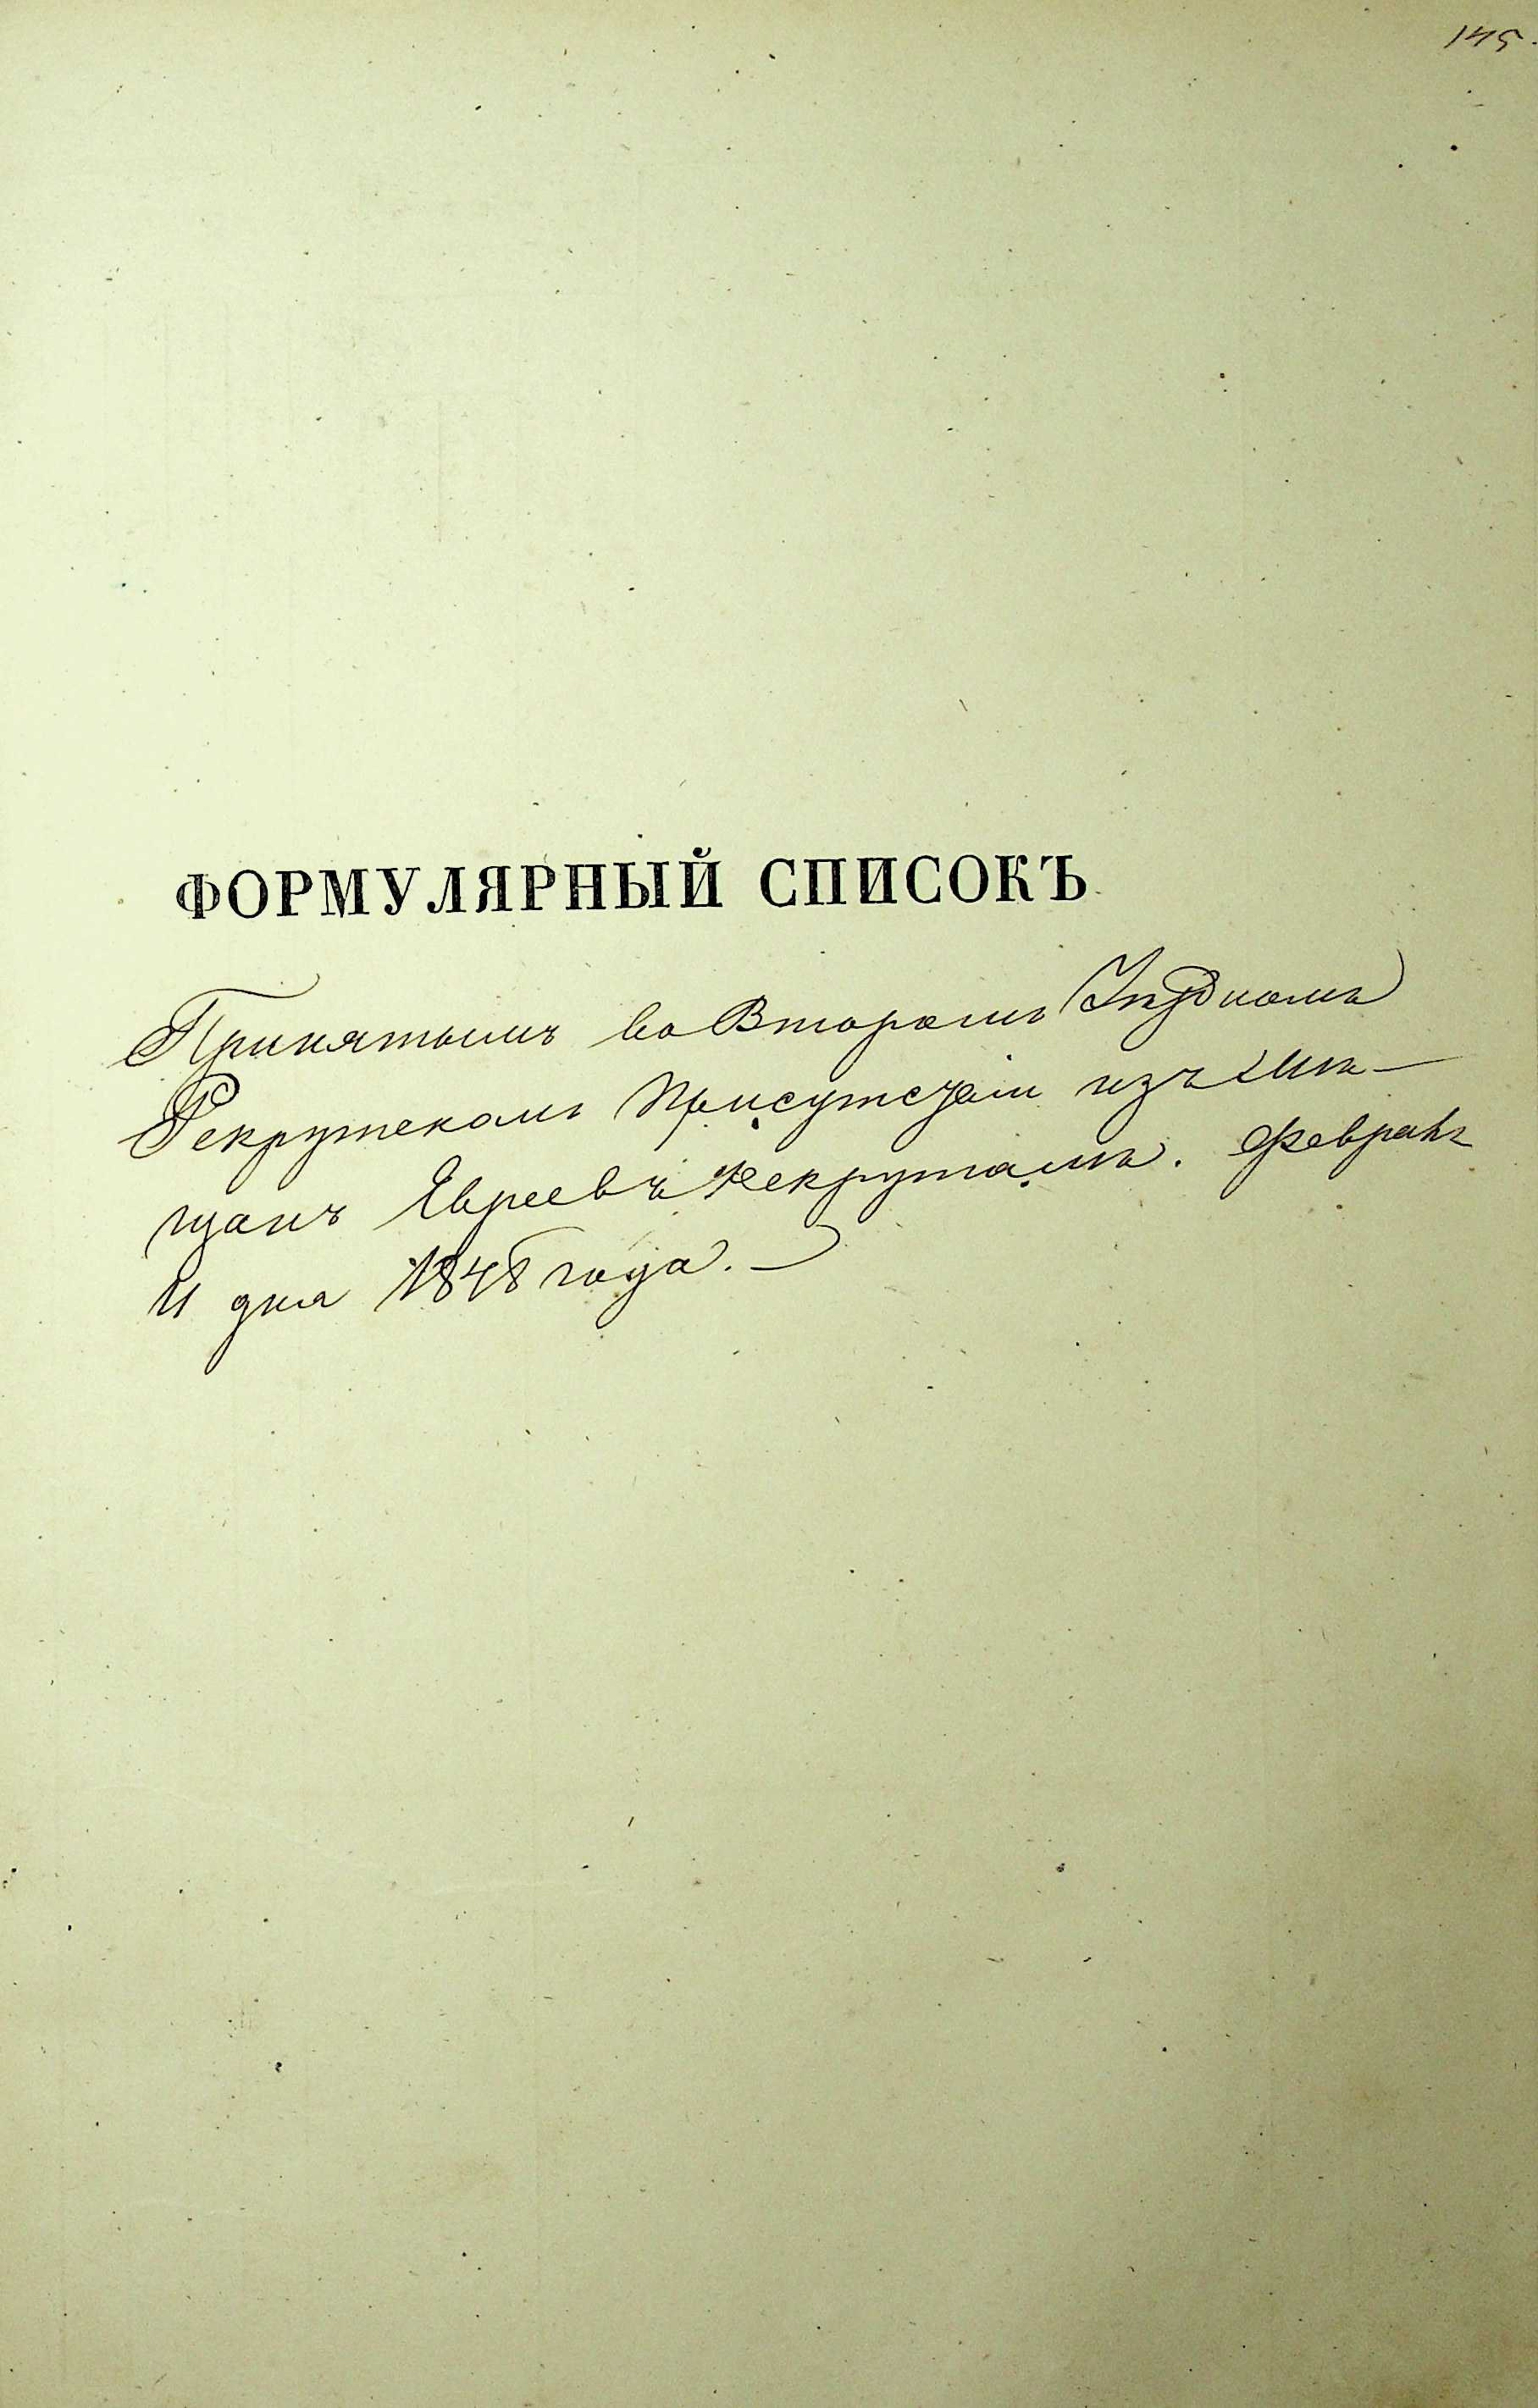 145.
ФОРМУЛЯРНЫЙ СПИСОКЪ
Принятымъ во Второмъ
Рекрутскомъ Присутствіи изъ Мѣ-
щанъ Евреевъ Рекрутамъ. Февраля
11 дня 1848 года.